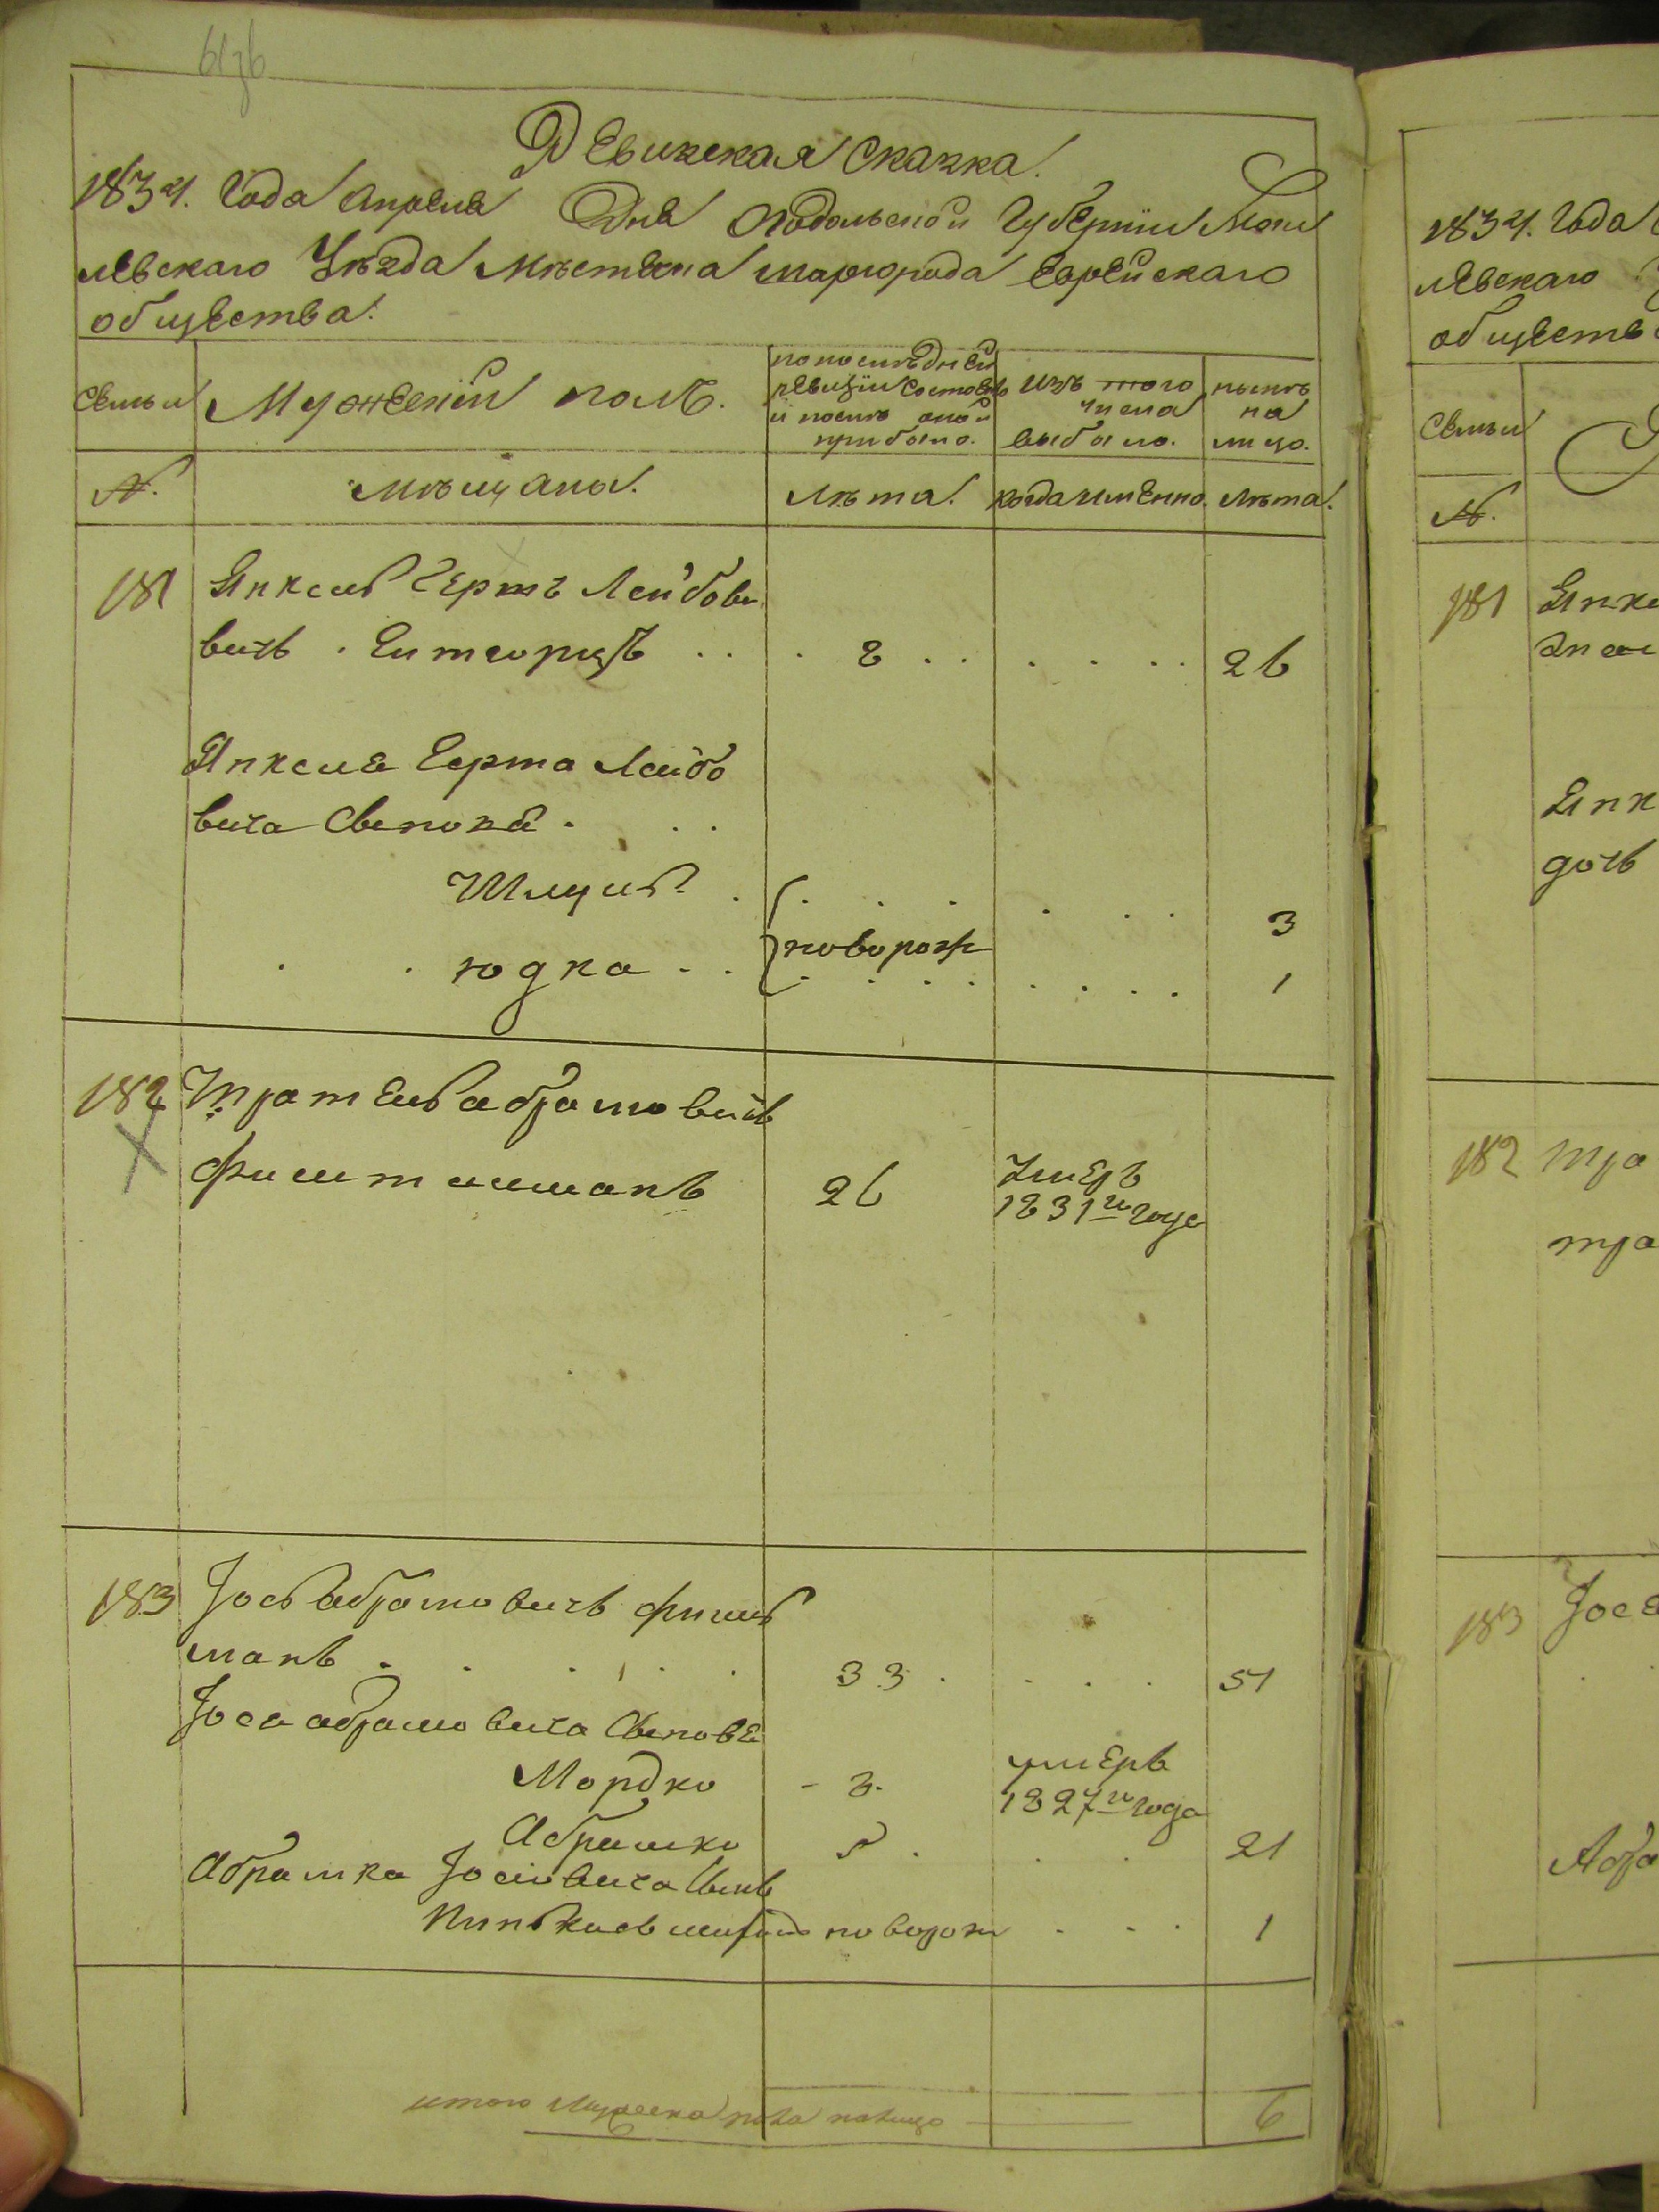 Ревижская сказка.
1834. Года Апреля Дня Подольской Губернии Моги
левскаго Уезда Местечка Шаргорода Еврейскаго
общества.
Семьи
Мужеский полъ.
по последней
ревизии состояло
и после оной
прибыло.
Изъ того
числа
выбыло.
ныне
на
лицо.
№.
Мещане.
Лета.
когда именно.
Лета.
181
Янкель Герш Лейбови
вичь
8
26
Янкеля Герша Лейбо
вича Сыновья
Шмуль
3
новорож
Юдка
1
182
Абрамовичь
Фиштильманъ
26
Умеръ
1831го года
183
Іось Абрамовичь Фишиль
манъ
33
51
Іося Абрамовича Сынове
Мордко
3
умеръ
1827го года
Абрамко
5
21
Абрамка Іосіовича Сынъ
Пинькась новорож
1
итого Мужеска пола налицо
6
1834. Года
левскаго
обществ
Семьи
№.
181
Янке
Янк
дочь
182
183
Іосе
Абра